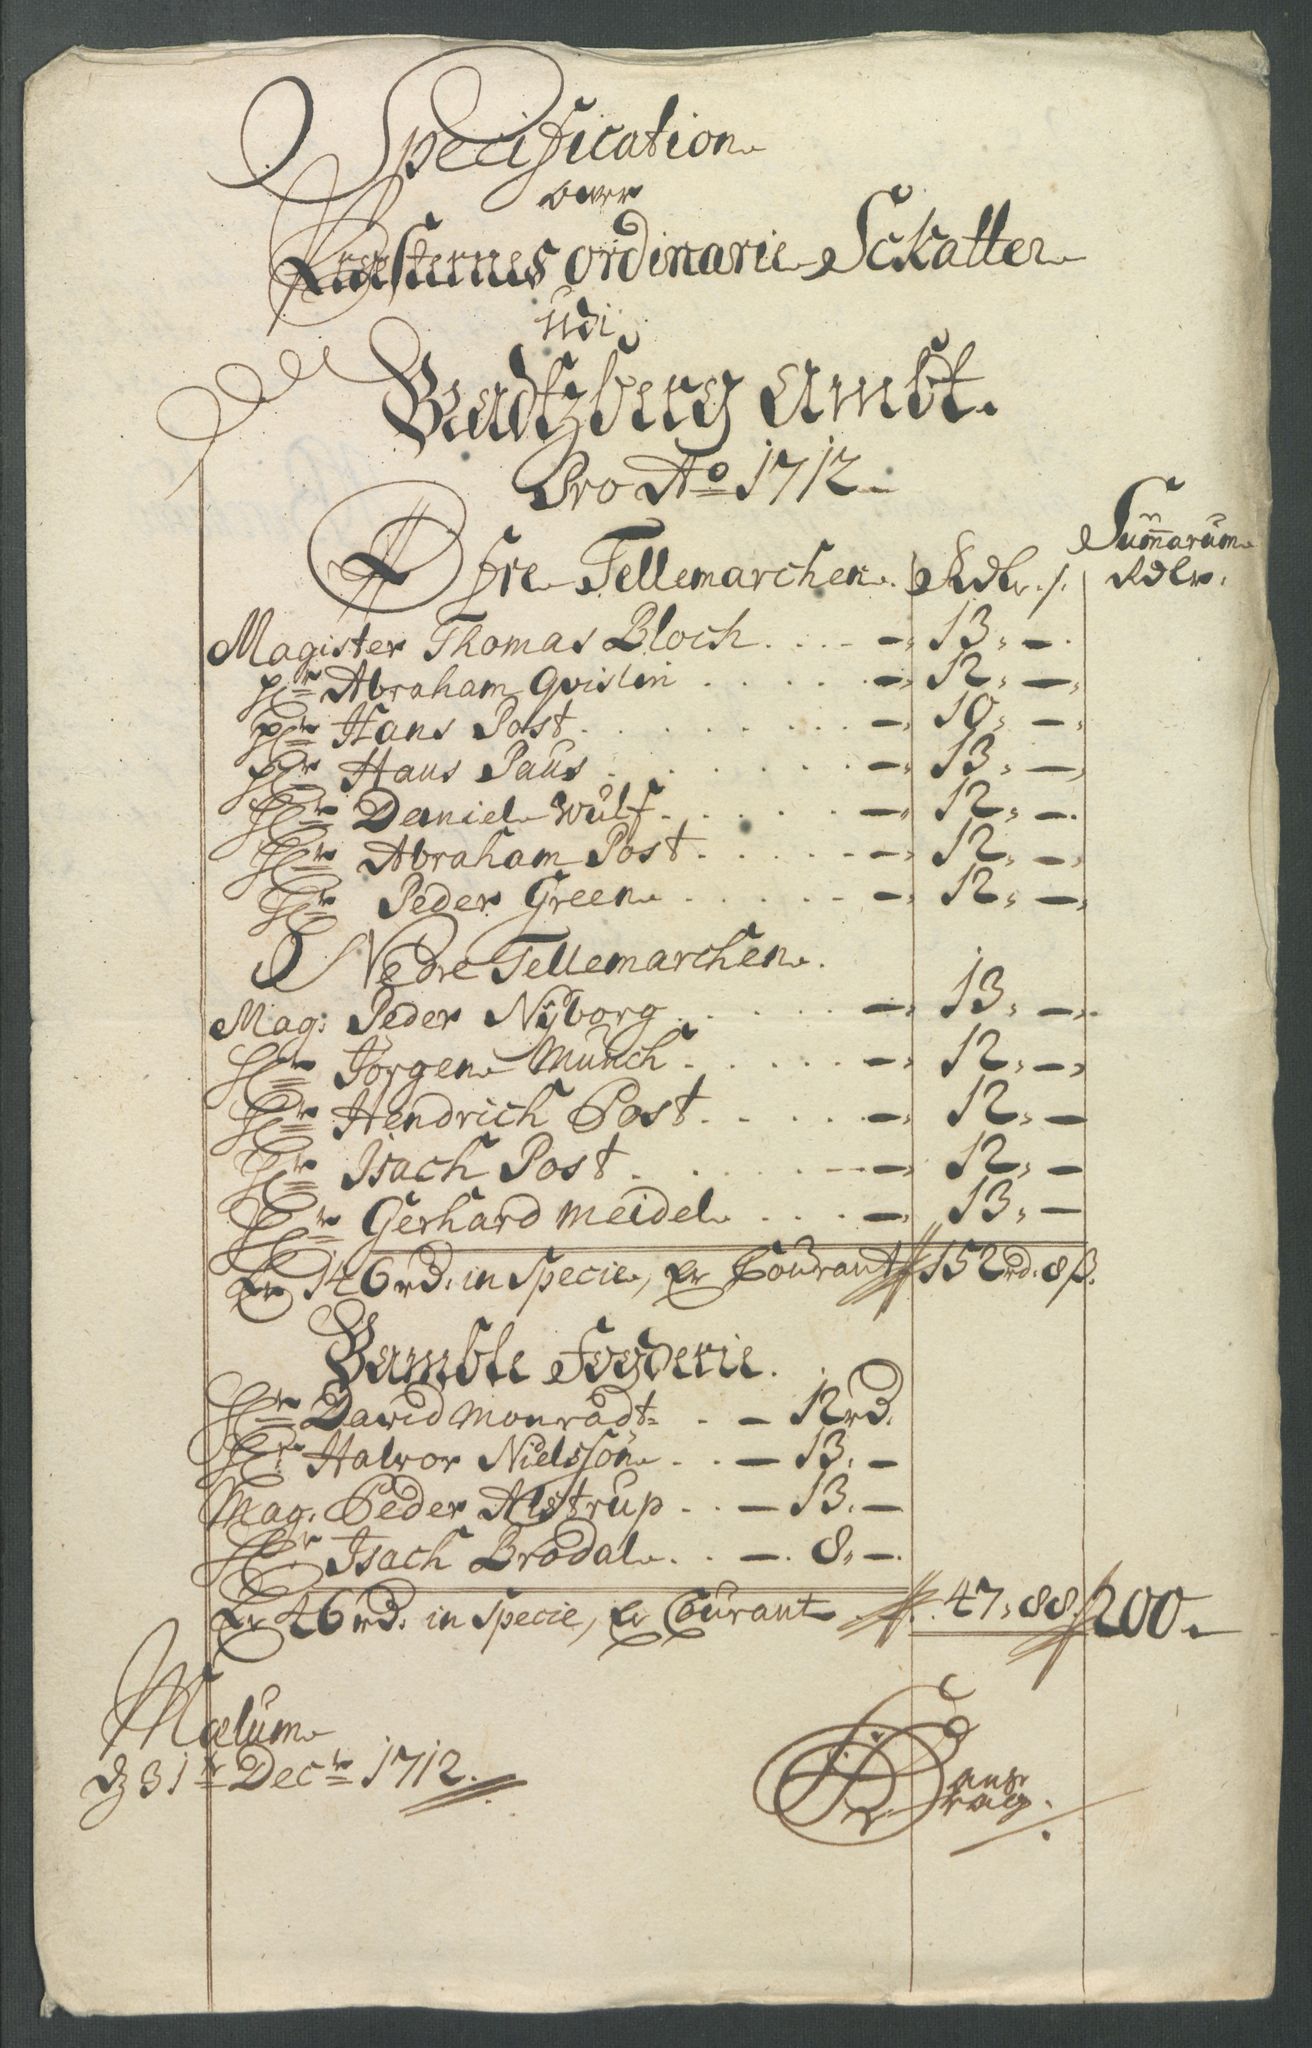 Specification
over
Præsternes ordinarie Sckatter
udi
Bradtzberg Ambt.
Pro Aº 1712.
Summarum
Øfre Tellemarchen. Rdlr. / Rdlr.
Magister Thomas Bloch . . . . -„ 13„ -.
Hr Abraham Qvislin . . . . . -„ 12„ -„
Hr Hans Post . . . . . . . . -„ 10„ -„
Hr Hans Paus . . . . . . . . -„ 13„ -„
Hr Daniel Wulf . . . . . -„ 12„ -.
Hr Abraham Post . . . . . -„ 12„ -„
Hr Peder Green . . . . . -„ 12„ -„
Nedre Tellemarchen.
Mag: Peder Nÿborg . . . . . -„ 13„ -„
Hr Jørgen Munch . . . . . -„ 12„ -„
Hr Hendrich Post . . . . . -„ 12„ -
Hr Isach Post . . . . . . -„ 12„ -
Hr Gerhard Meidel . . . -„ 13„ -
Er 146 rd. in Specie, Er Courant 152 rd. 8 s.
Bamble Fogderie.
Hr David Monradt . . - 12 rd.
Hr Halvor Nielssøn . . - 13. -
Mag. Peder Alstrup . . - 13. -
Hr Isach Brodal . . -. 8„ -.
Er 46 rd. in Specie, Er Courant . 47„ 88. 200. -
Mælum
d 31te Decr 1712.
Hans
Krag.